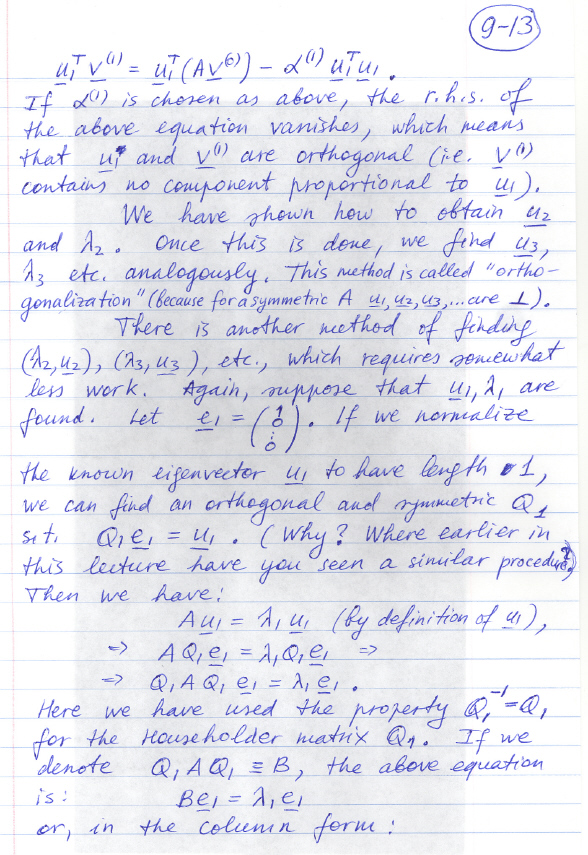 9-13
u₁ᵀ v⁽¹⁾ = u₁ᵀ (A v⁽⁰⁾) − α⁽¹⁾ u₁ᵀ u₁ .
If α⁽¹⁾ is chosen as above, the r.h.s. of
the above equation vanishes, which means
that u₁ and v⁽¹⁾ are orthogonal (i.e. v⁽¹⁾
contains no component proportional to u₁).
We have shown how to obtain u₂
and λ₂. Once this is done, we find u₃,
λ₃ etc. analogously. This method is called "ortho-
gonalization" (because for a symmetric A u₁, u₂, u₃, ... are ⊥).
There is another method of finding
(λ₂, u₂), (λ₃, u₃), etc., which requires somewhat
less work. Again, suppose that u₁, λ₁ are
found. Let e₁ = (1 0 ⋮ 0). If we normalize
the known eigenvector u₁ to have length 1,
we can find an orthogonal and symmetric Q₁
s.t. Q₁e₁ = u₁ . (Why? Where earlier in
this lecture have you seen a similar procedure?)
Then we have:
A u₁ = λ₁ u₁ (by definition of u₁),
=> A Q₁ e₁ = λ₁ Q₁ e₁ =>
=> Q₁ A Q₁ e₁ = λ₁ e₁ .
Here we have used the property Q₁⁻¹ = Q₁
for the Householder matrix Q₁. If we
denote Q₁ A Q₁ ≡ B, the above equation
is: B e₁ = λ₁ e₁
or, in the column form: